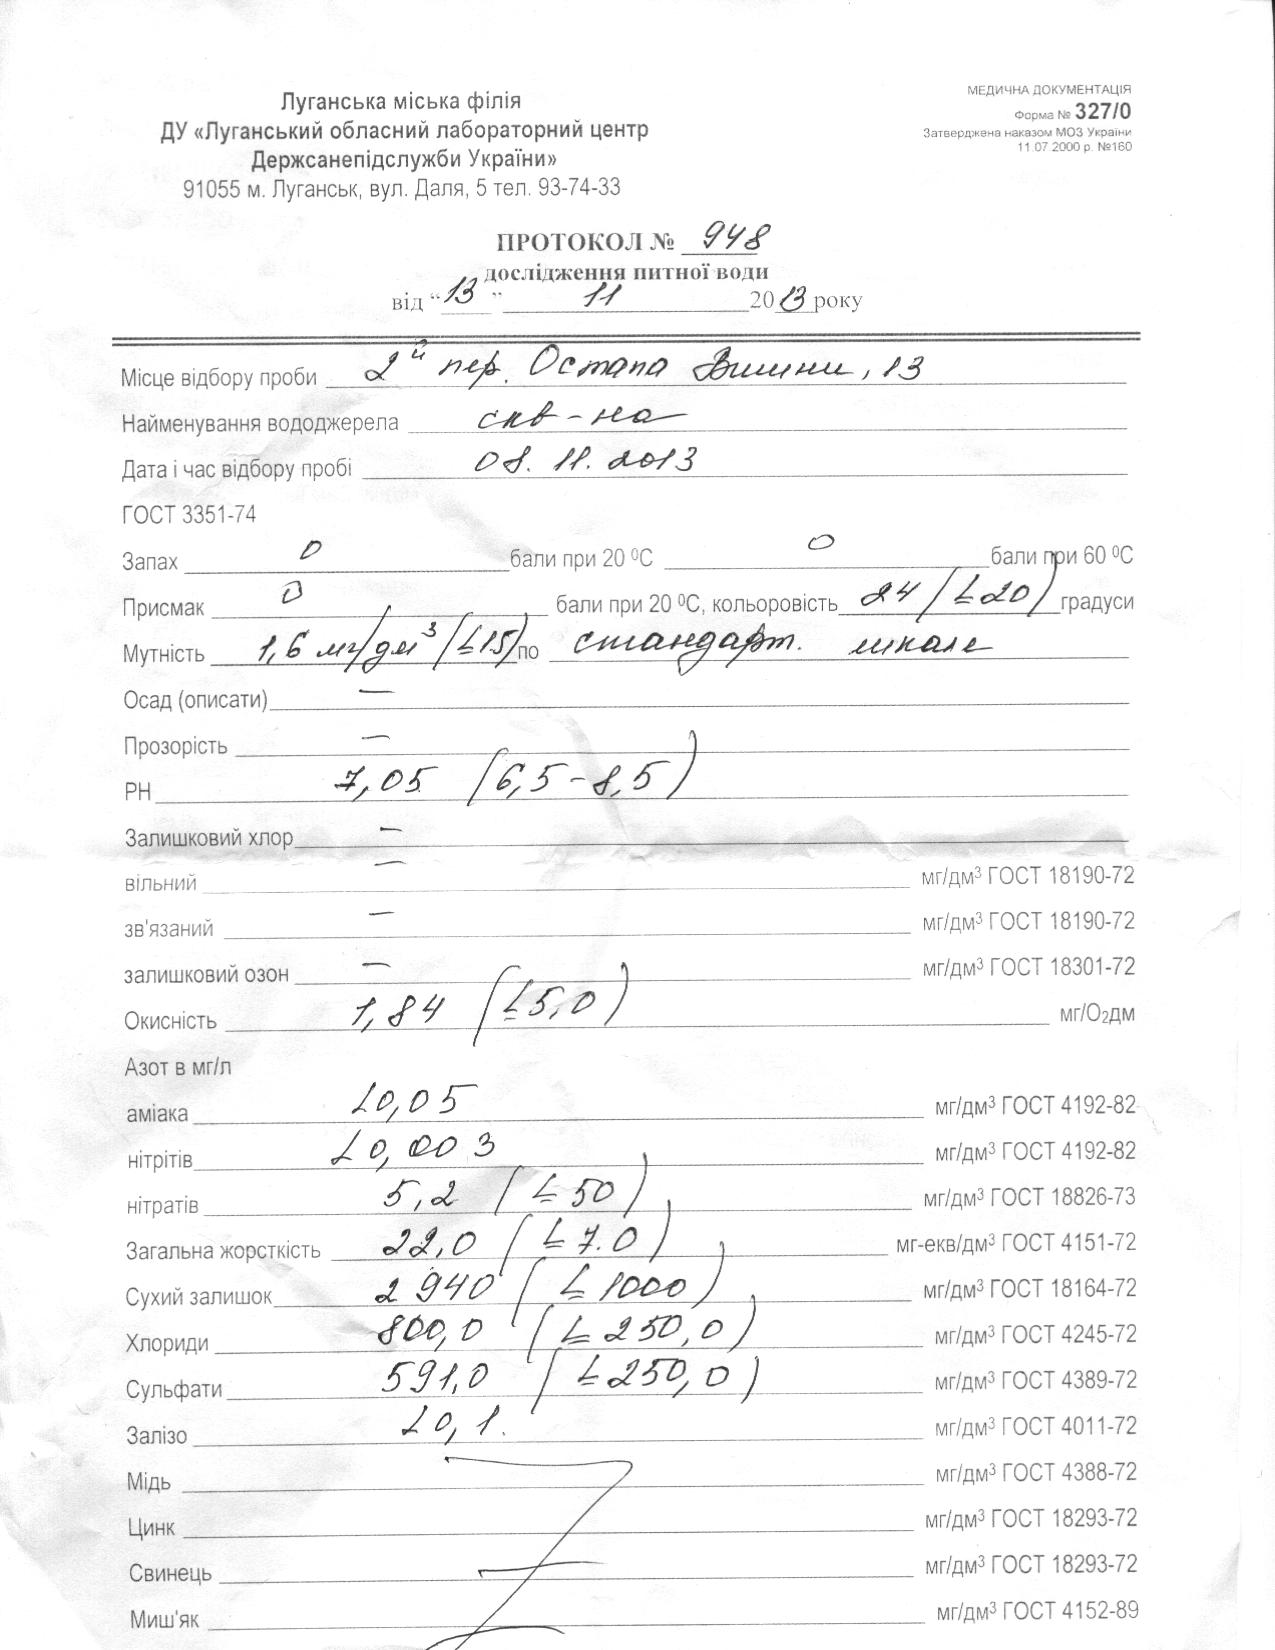 Луганська міська філія
ДУ «Луганський обласний лабораторний центр
Держсанепідслужби України»
91055 м. Луганськ, вул. Даля, 5 тел. 93-74-33
МЕДИЧНА ДОКУМЕНТАЦІЯ
Форма № 327/0
Затверджена наказом МОЗ України
11.07.2000 р. №160
ПРОТОКОЛ № 948
дослідження питної води
від “13” 11 2013 року
Місце відбору проби 2й пер. Остапа Вишни, 13
Найменування вододжерела скв-на
Дата і час відбору пробі 08.11.2013
ГОСТ 3351-74
Запах 0 бали при 20 ⁰С 0 бали при 60 ⁰С
Присмак 0 бали при 20 ⁰С, кольоровість 24 (≤20) градуси
Мутність 1,6 мг/дм³ (≤15) по стандарт. шкале
Осад (описати) —
Прозорість —
РН 7,05 (6,5-8,5)
Залишковий хлор —
вільний — мг/дм³ ГОСТ 18190-72
зв'язаний — мг/дм³ ГОСТ 18190-72
залишковий озон — мг/дм³ ГОСТ 18301-72
Окисність 1,84 (≤5,0) мг/О₂дм
Азот в мг/л
аміака <0,05 мг/дм³ ГОСТ 4192-82
нітрітів <0,003 мг/дм³ ГОСТ 4192-82
нітратів 5,2 (≤50) мг/дм³ ГОСТ 18826-73
Загальна жорсткість 22,0 (≤7.0) мг-екв/дм³ ГОСТ 4151-72
Сухий залишок 2940 (≤1000) мг/дм³ ГОСТ 18164-72
Хлориди 800,0 (≤250,0) мг/дм³ ГОСТ 4245-72
Сульфати 591,0 (≤250,0) мг/дм³ ГОСТ 4389-72
Залізо <0,1. мг/дм³ ГОСТ 4011-72
Мідь мг/дм³ ГОСТ 4388-72
Цинк мг/дм³ ГОСТ 18293-72
Свинець мг/дм³ ГОСТ 18293-72
Миш'як мг/дм³ ГОСТ 4152-89